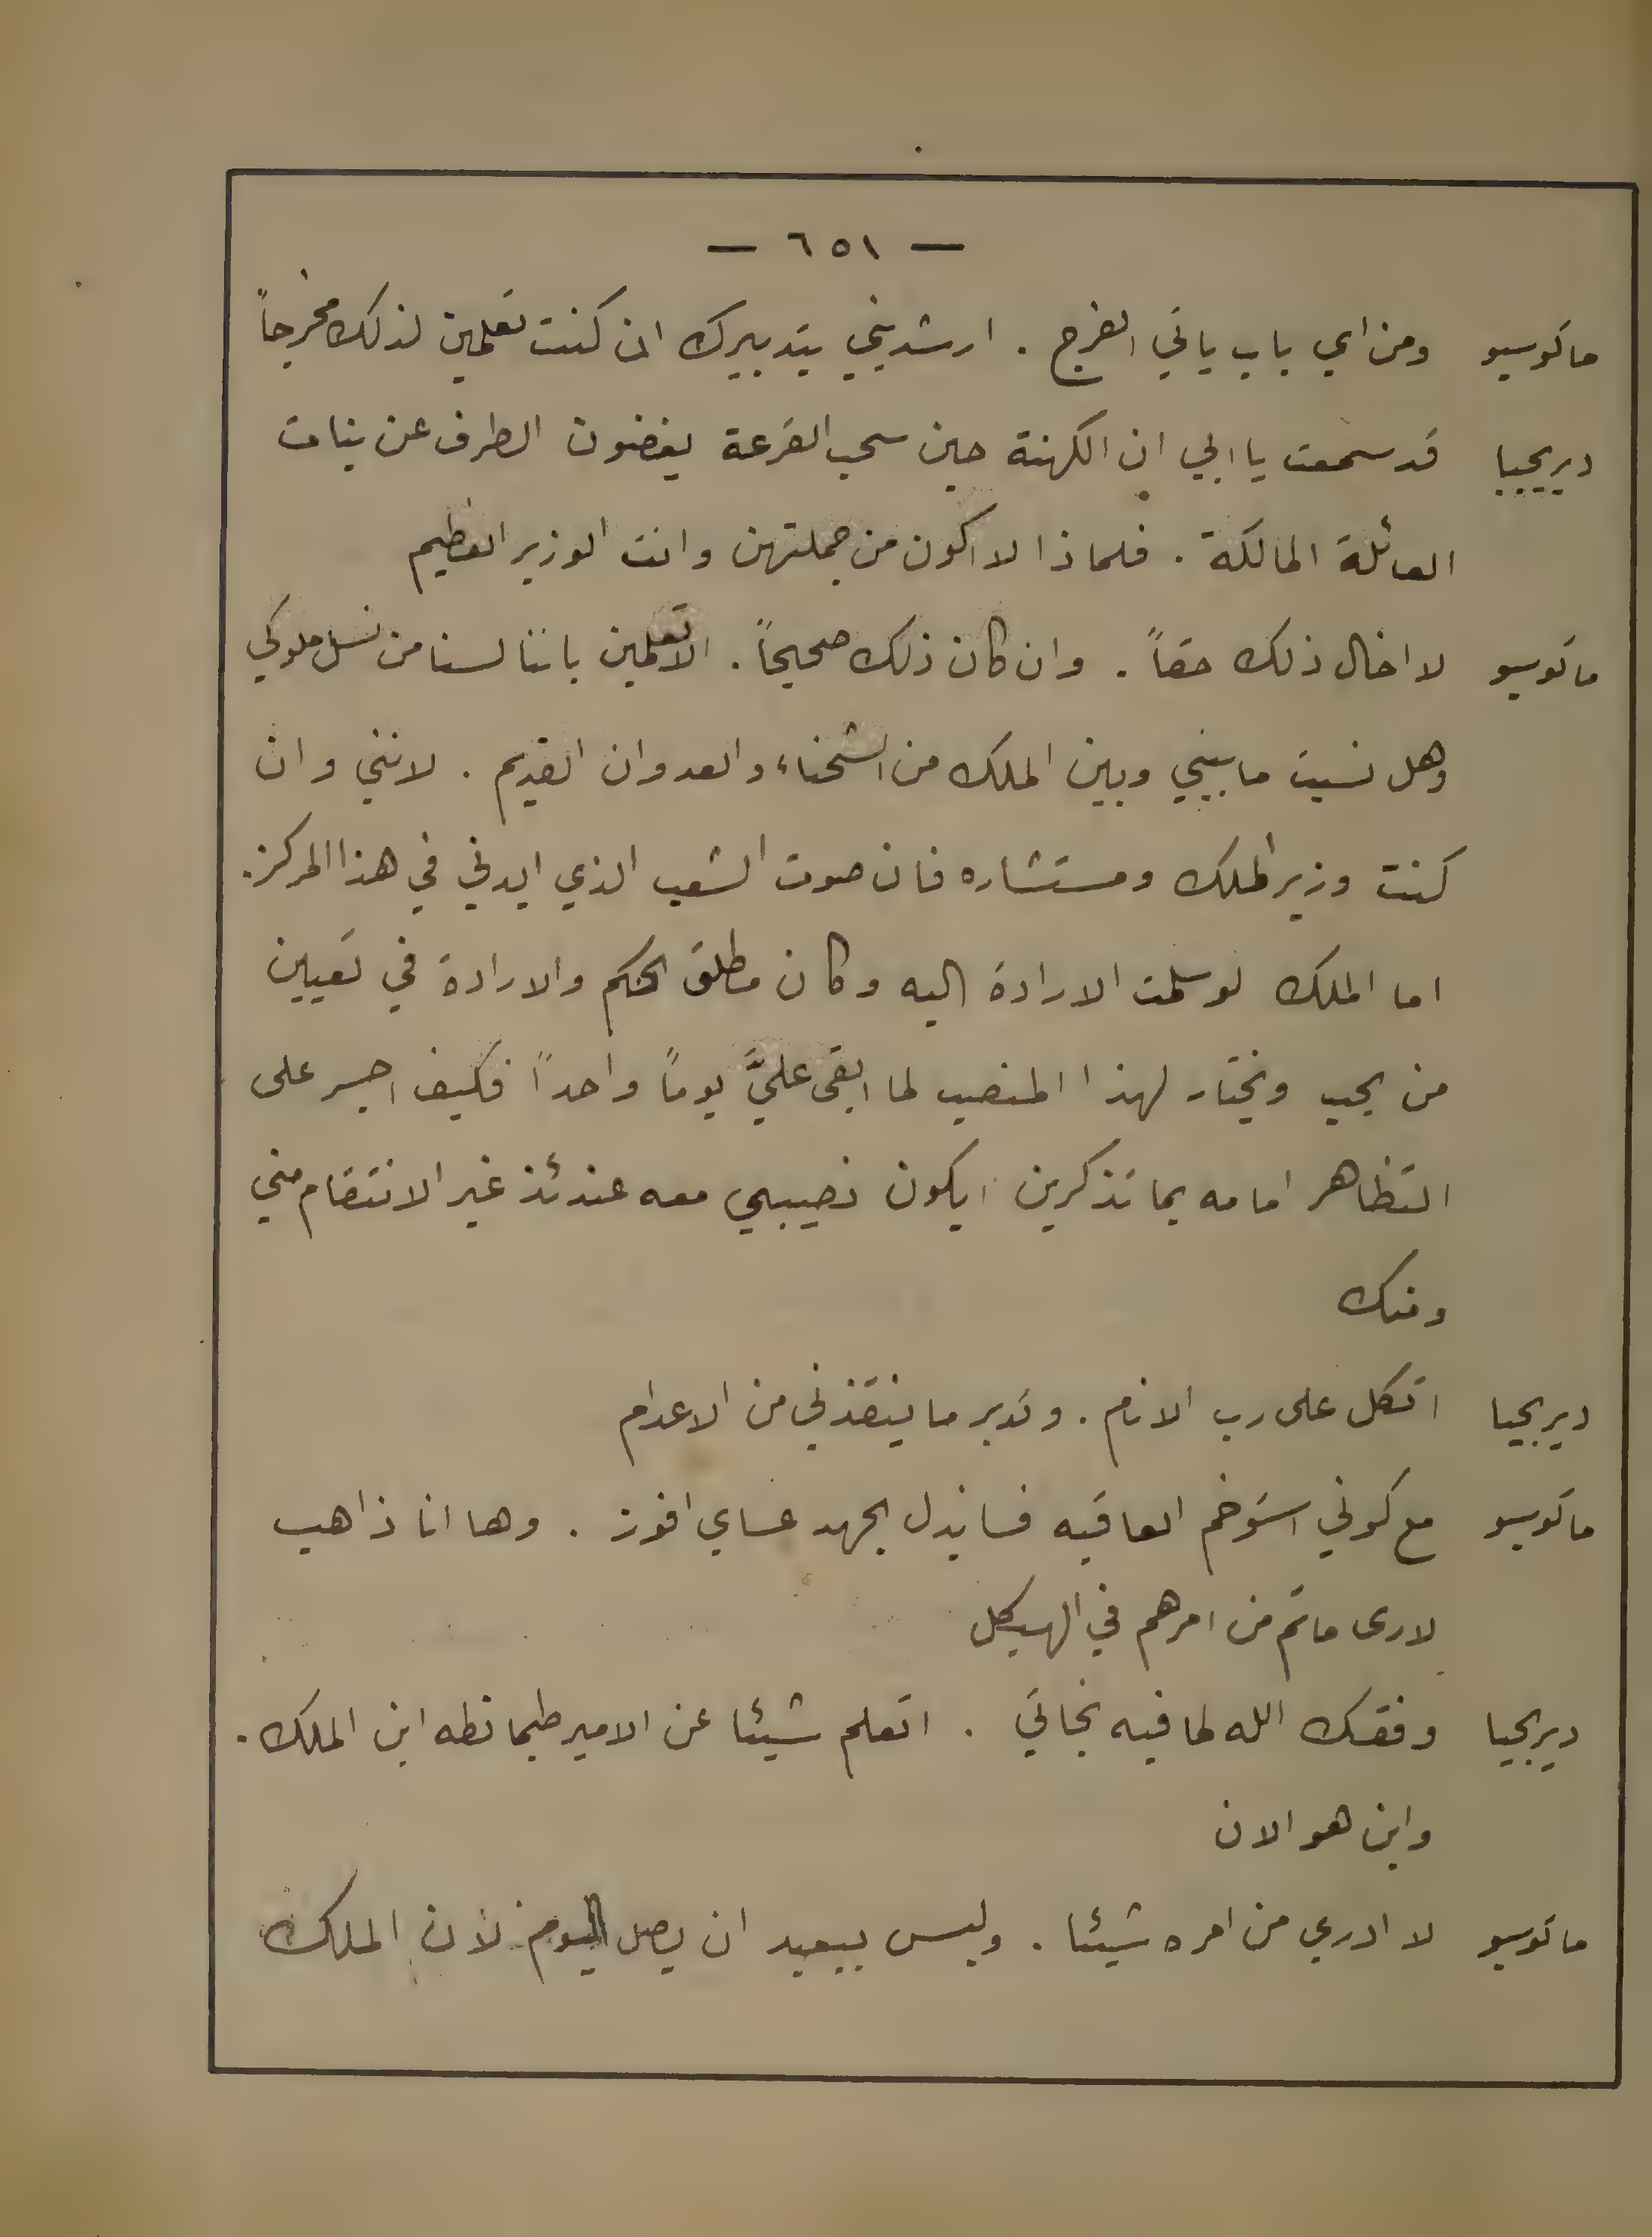 — ٦٥١ —
ماتوسيو ومن اي باب ياتي الفرج . ارشديني بتدبيرك ان كنت تعلمين لذلك مخرجاً
ديرجيا قد سمعت يا ابي ان الكهنة حين سحب القرعة يغضون الطرف عن بنات
العائلة المالكة . فلماذا لا اكون من جملتهن وانت الوزير العظيم
ماتوسيو لا اخال ذلك حقاً . وان كان ذلك صحيحاً . الا تعلمين باننا لسنا من نسل ملوكي
وهل نسيت ما بيني وبين الملك من الشحناء والعدوان القديم . لانني وان
كنت وزير الملك ومستشاره فان صوت الشعب الذي ايدني في هذا المركز .
اما الملك لو سلمت الارادة اليه وكان مطلق الحكم والارادة في تعيين
من يحب ويختار لهذا المنصب لما ابقى عليَّ يوماً واحداً فكيف اجسر على
التظاهر امامه بما تذكرين ايكون نصيبي معه عندئذ غير الانتقام مني
ومنك
ديرجيا اتكل على رب الانام . وتدبر ما ينقذني من الاعدام
ماتوسيو مع كوني استوخم العاقبه فسابذل الجهد عساي افوز . وها انا ذاهب
لارى ماتم من امرهم في الهيكل
ديرجيا وفقك الله لما فيه نجاتي . اتعلم شيئا عن الامير طيمانطه ابن الملك .
واين هو الان
ماتوسيو لا ادري من امره شيئا . وليس ببعيد ان يصل اليوم لان الملك